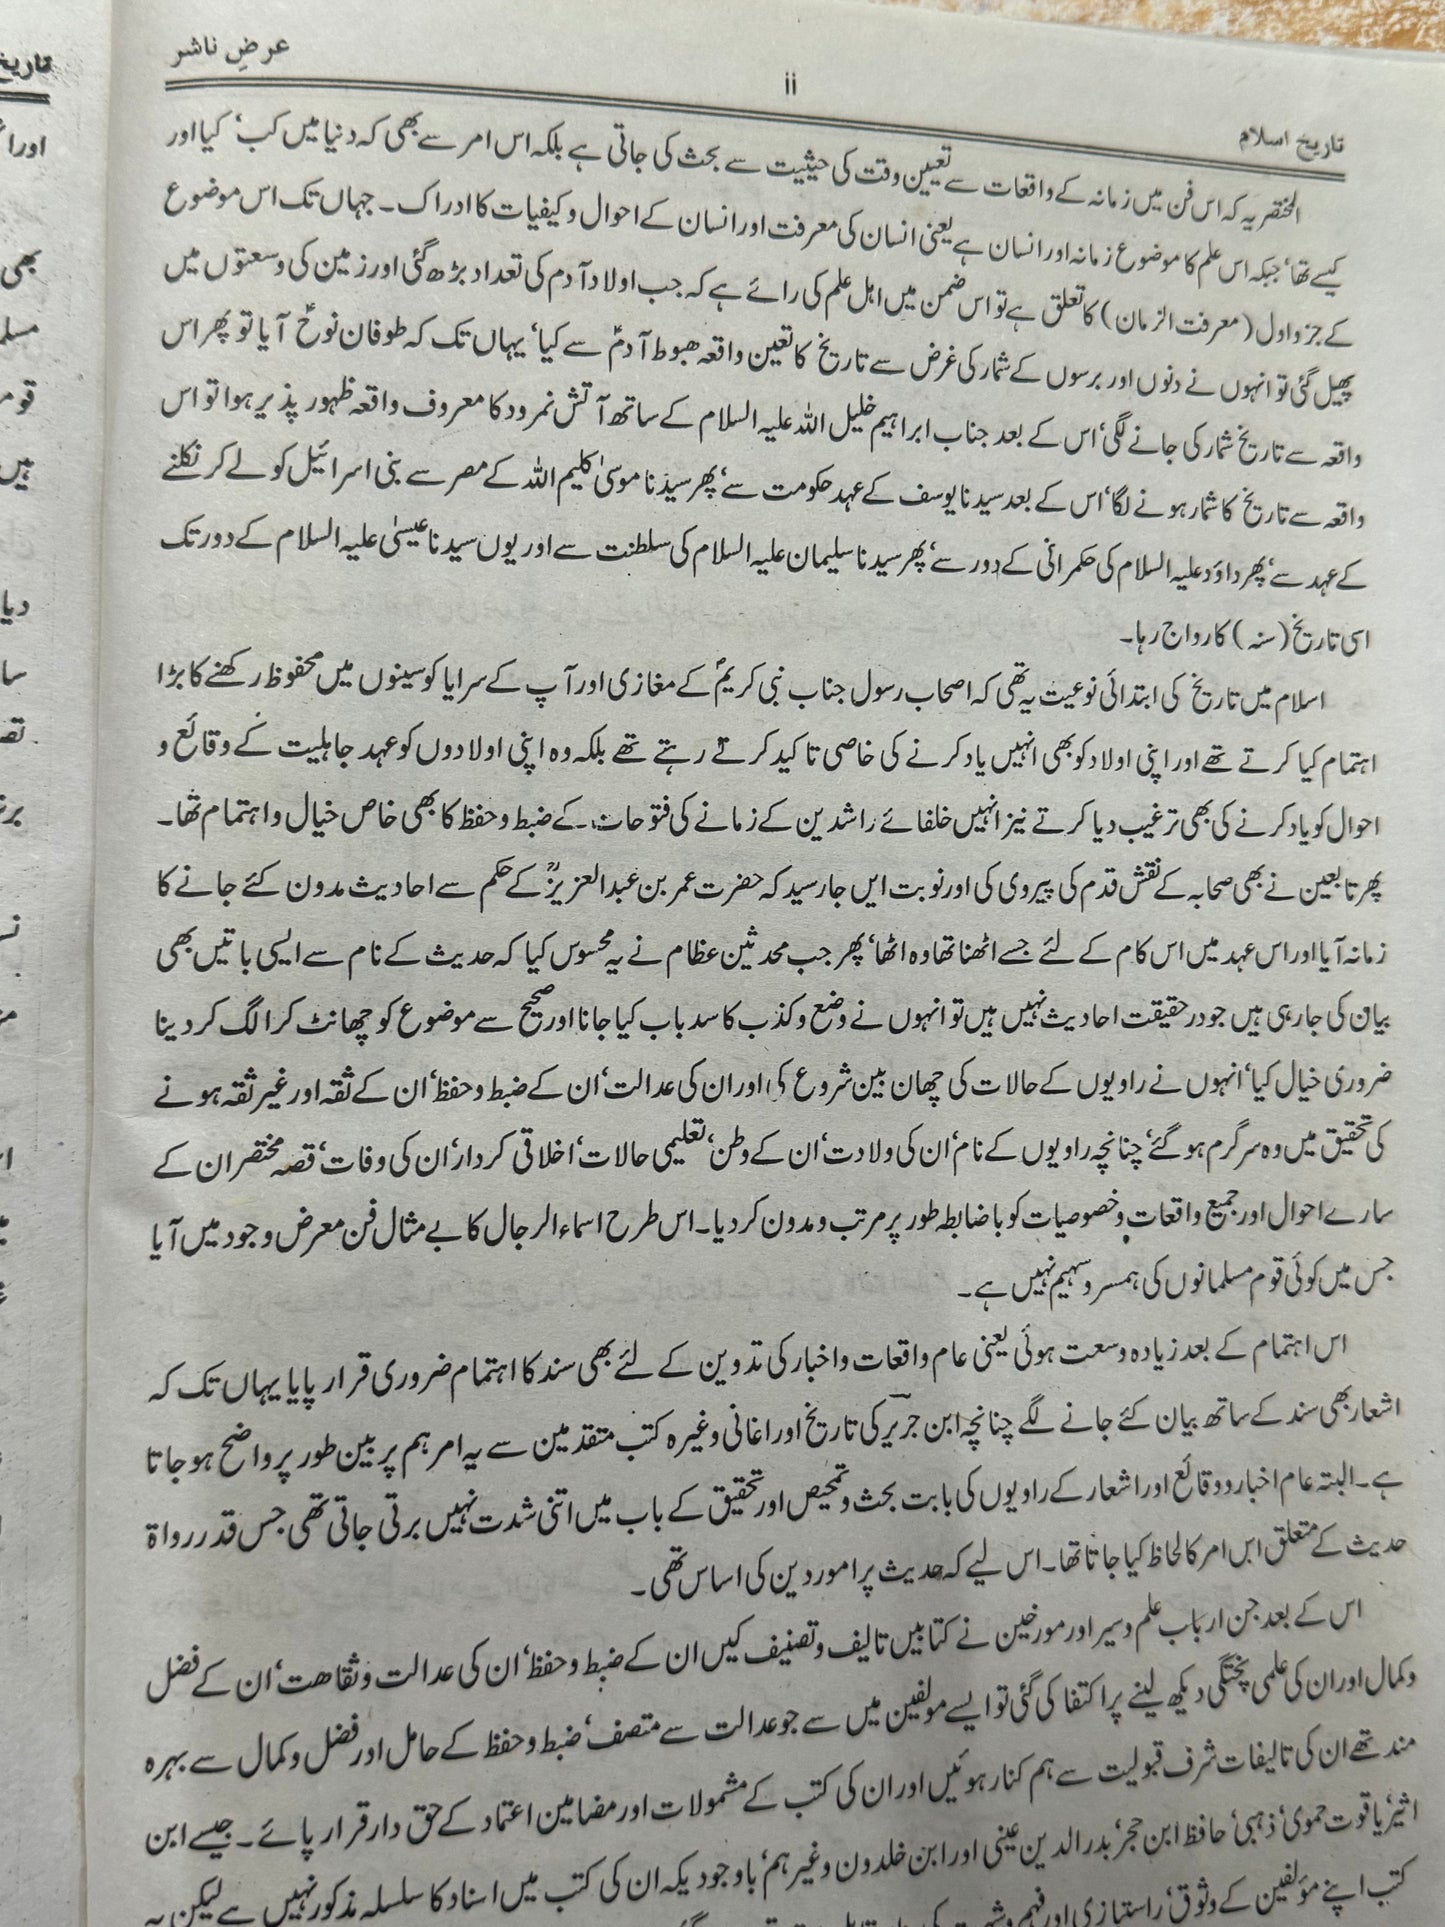 عرضِ ناشر
ii
تاریخ اسلام
المختصر یہ کہ اس فن میں زمانہ کے واقعات سے تعیین وقت کی حیثیت سے بحث کی جاتی ہے بلکہ اس امر سے بھی کہ دنیا میں کب‘ کیا اور
کیسے تھا‘ جبکہ اس علم کا موضوع زمانہ اور انسان ہے یعنی انسان کی معرفت اور انسان کے احوال و کیفیات کا ادراک۔ جہاں تک اس موضوع
کے جزو اول (معرفت الزمان) کا تعلق ہے تو اس ضمن میں اہل علم کی رائے ہے کہ جب اولاد آدم کی تعداد بڑھ گئی اور زمین کی وسعتوں میں
پھیل گئی تو انہوں نے دنوں اور برسوں کے شمار کی غرض سے تاریخ کا تعین واقعہ ھبوط آدمؑ سے کیا‘ یہاں تک کہ طوفان نوحؑ آیا تو پھر اس
واقعہ سے تاریخ شمار کی جانے لگی‘ اس کے بعد جناب ابراہیم خلیل اللہ علیہ السلام کے ساتھ آتش نمرود کا معروف واقعہ ظہور پذیر ہوا تو اس
واقعہ سے تاریخ کا شمار ہونے لگا‘ اس کے بعد سیدنا یوسف کے عہد حکومت سے‘ پھر سیدنا موسیٰ کلیم اللہ کے مصر سے بنی اسرائیل کو لے کر نکلنے
کے عہد سے‘ پھر داؤد علیہ السلام کی حکمرانی کے دور سے‘ پھر سیدنا سلیمان علیہ السلام کی سلطنت سے اور یوں سیدنا عیسیٰ علیہ السلام کے دور تک
اسی تاریخ (سنہ) کا رواج رہا۔
اسلام میں تاریخ کی ابتدائی نوعیت یہ تھی کہ اصحاب رسول جناب نبی کریمؐ کے مغازی اور آپ کے سرایا کو سینوں میں محفوظ رکھنے کا بڑا
اہتمام کیا کرتے تھے اور اپنی اولاد کو بھی انہیں یاد کرنے کی خاصی تاکید کرتے رہتے تھے بلکہ وہ اپنی اولادوں کو عہد جاہلیت کے وقائع و
احوال کو یاد کرنے کی بھی ترغیب دیا کرتے نیز انہیں خلفائے راشدین کے زمانے کی فتوحات کے ضبط و حفظ کا بھی خاص خیال و اہتمام تھا۔
پھر تابعین نے بھی صحابہ کے نقش قدم کی پیروی کی اور نوبت ایں جا رسید کہ حضرت عمر بن عبدالعزیزؒ کے حکم سے احادیث مدون کئے جانے کا
زمانہ آیا اور اس عہد میں اس کام کے لئے جسے اٹھنا تھا وہ اٹھا‘ پھر جب محدثین عظام نے یہ محسوس کیا کہ حدیث کے نام سے ایسی باتیں بھی
بیان کی جا رہی ہیں جو درحقیقت احادیث نہیں ہیں تو انہوں نے وضع و کذب کا سدباب کیا جانا اور صحیح سے موضوع کو چھانٹ کر الگ کر دینا
ضروری خیال کیا‘ انہوں نے راویوں کے حالات کی چھان بین شروع کی اور ان کی عدالت‘ ان کے ضبط و حفظ‘ ان کے ثقہ اور غیر ثقہ ہونے
کی تحقیق میں وہ سرگرم ہو گئے‘ چنانچہ راویوں کے نام‘ ان کی ولادت‘ ان کے وطن‘ تعلیمی حالات‘ اخلاقی کردار‘ ان کی وفات‘ قصہ مختصر ان کے
سارے احوال اور جمیع واقعات و خصوصیات کو باضابطہ طور پر مرتب و مدون کر دیا۔ اس طرح اسماء الرجال کا بے مثال فن معرض وجود میں آیا
جس میں کوئی قوم مسلمانوں کی ہمسر و سہیم نہیں ہے۔
اس اہتمام کے بعد زیادہ وسعت ہوئی یعنی عام واقعات و اخبار کی تدوین کے لئے بھی سند کا اہتمام ضروری قرار پایا یہاں تک کہ
اشعار بھی سند کے ساتھ بیان کئے جانے لگے چنانچہ ابن جریر کی تاریخ اور اغانی وغیرہ کتب متقدمین سے یہ امر ہم پر بین طور پر واضح ہو جاتا
ہے۔ البتہ عام اخبار و وقائع اور اشعار کے راویوں کی بابت بحث و تمحیص اور تحقیق کے باب میں اتنی شدت نہیں برتی جاتی تھی جس قدر رواۃ
حدیث کے متعلق اس امر کا لحاظ کیا جاتا تھا۔ اس لیے کہ حدیث پر امور دین کی اساس تھی۔
اس کے بعد جن ارباب علم و سیر اور مورخین نے کتابیں تالیف و تصنیف کیں ان کے ضبط و حفظ‘ ان کی عدالت و ثقاھت‘ ان کے فضل
و کمال اور ان کی علمی پختگی دیکھ لینے پر اکتفا کی گئی تو ایسے مولفین میں سے جو عدالت سے متصف‘ ضبط و حفظ کے حامل اور فضل و کمال سے بہرہ
مند تھے ان کی تالیفات شرف قبولیت سے ہم کنار ہوئیں اور ان کی کتب کے مشمولات اور مضامین اعتماد کے حق دار قرار پائے۔ جیسے ابن
اثیر‘ یاقوت حموی‘ ذہبی‘ حافظ ابن حجر‘ بدرالدین عینی اور ابن خلدون وغیرہم‘ باوجودیکہ ان کی کتب میں اسناد کا سلسلہ مذکور نہیں ہے لیکن یہ
کتب اپنے مؤلفین کے وثوق‘ راستبازی اور فہم